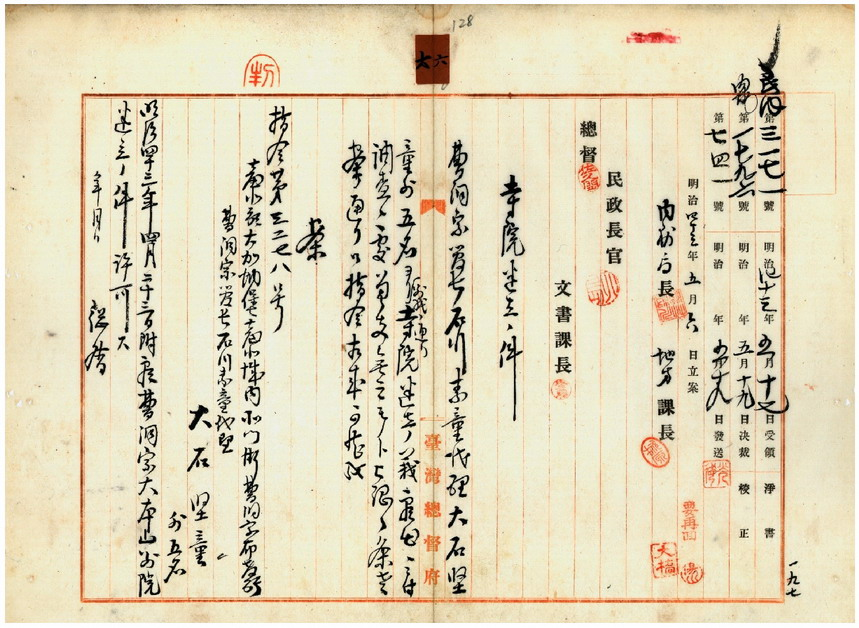 128
六七
第三一七一號 明治四十三年五月十七日受領 淨書
第一七九六號 明治 年五月十九日決裁 校正
第七四一號 明治 年 日發送
明治四三年五月六日立案
內務局長 地方課長
要再回
大橋
民政長官
總督
文書課長
寺院建立ノ件
曹洞宗管長石川素童代理大石堅
童外五名ヨリ別紙ノ通リ寺院建立ノ義願出ニ付
調査ノ處
案ノ通リ御指令相成可然哉
案
指令第三二七八号
臺北廳大加蚋堡臺北城內東門街曹洞宗布教所
曹洞宗管長石川素童代理
大石堅童
外五名
明治四十三年四月二十二日附願曹洞宗大本山別院
建立ノ件許可ス
年月日 總督
臺灣總督府
一九七